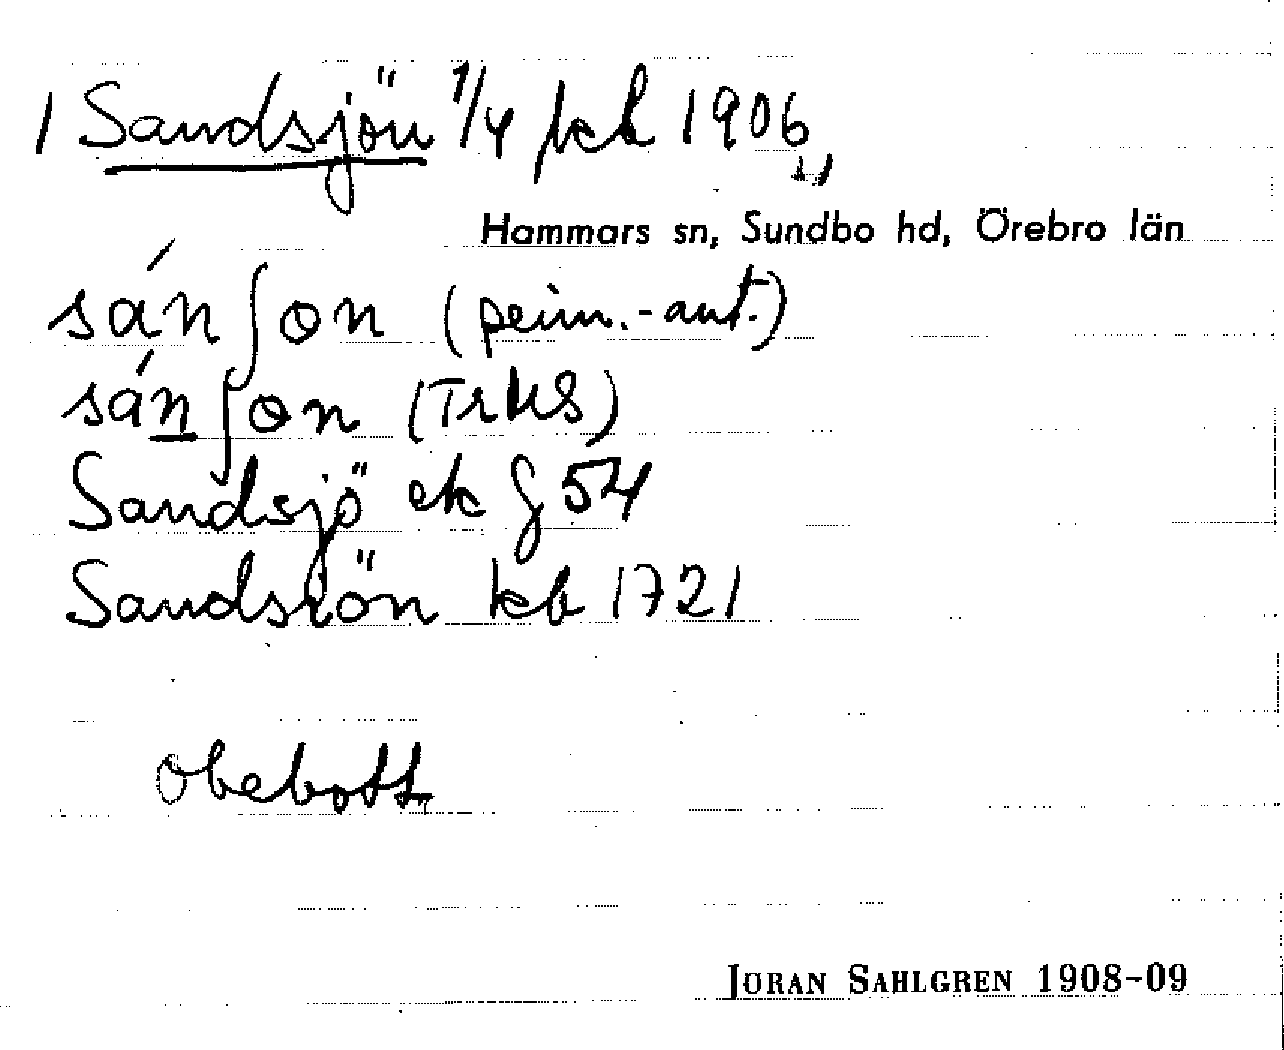 1 Sandsjön 1/4 jkb 1906
Hammars sn, Sundbo hd, Örebro län
sánʃɵn (prim.-ant.)
sánʃɵn (TrKS)
Sandsjö ek § 54
Sandsiön kb 1721
obebott
JÖRAN SAHLGREN 1908-09